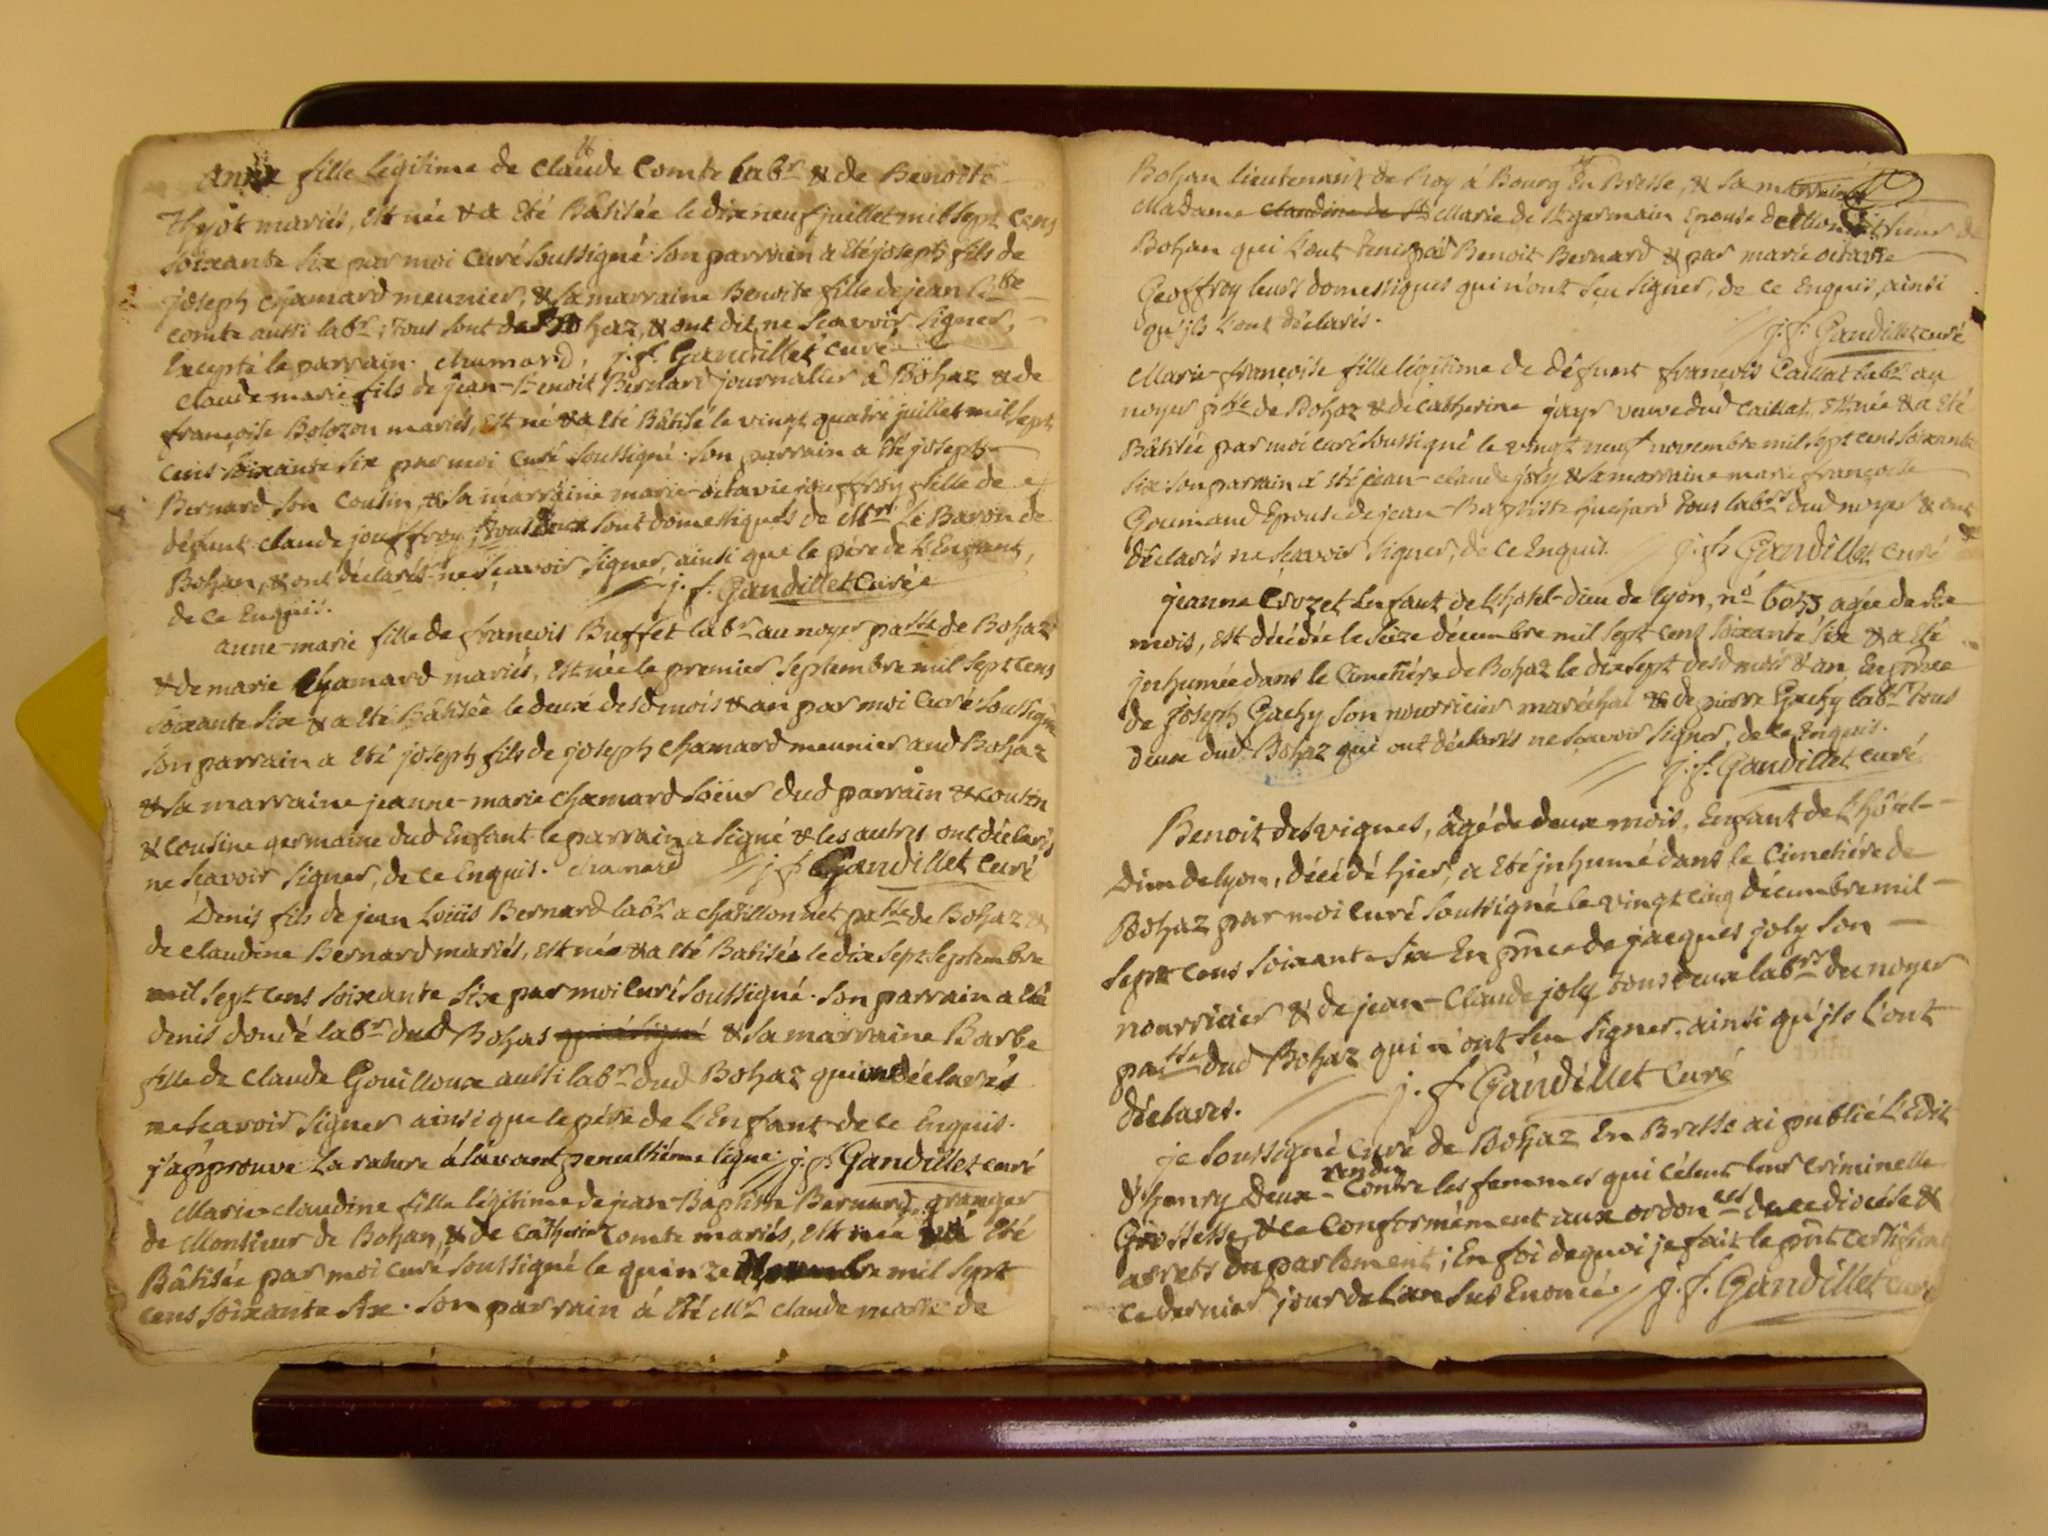 Anne fille légitime de claude Comte labr & de Benoite
Thyot mariés, est née & a été Bâtisée le dixneuf juillet mil sept cens
soixante six par moi curé soussigné son parrain a été joseph fils de
joseph chamard meunier, & sa marraine Benoite fille de jean Btte
comte aussi labr; tous sont de Bohaz, & ont dit ne scavoir signer,
Excepté le parrain. chamard, j. f. Gandillet curé
Claude marie fils de jean-Benoit Bernard journalier à Bohaz & de
françoise Bolozon mariés, est né & a été Bâtisé le vingt quatre juillet mil sept
cens soixante six par moi curé soussigné. son parrain a été joseph
Bernard son cousin, & sa marraine marie-octavie jouffroy fille de
défunt claude jouffroy, tous deux sont domestiques de Mr Le Baron de
Bohan, & ont déclarés ne scavoir signer, ainsi que le père de L'Enfant,
de ce Enquis. j. f. Gandillet curé
anne-marie fille de francois Buffet labr au noyer patte de Bohaz
& de marie Chamard mariés, est née le premier septembre mil sept cens
soixante six & a été Bâtisée le deux desd mois & an par moi curé soussigné
son parrain a été joseph fils de joseph chamard meunier aud Bohaz
& sa marraine jeanne-marie chamard soeur dud parrain & cousin
& cousine germaine dud Enfant le parrain a signé & les autres ont déclarés
ne scavoir signer, de ce Enquis. chamard j. f. Gandillet curé
Denis fils de jean Louis Bernard labr a chatillonnet patte de Bohaz &
de claudine Bernard mariés, est née & a été Batisée le dix sept septembre
mil sept cens soixante six par moi curé soussigné. son parrain a été
denis dondé labr dud Bohas qui a signé & sa marraine Barbe
fille de claude Gouilloux aussi labr dud Bohaz qui ont déclarés
ne scavoir signer ainsi que le père de L'Enfant de ce Enquis.
j'approuve la rature à lavant penultiéme ligne j. f. Gandillet curé
Marie-claudine fille légitime de jean Baptiste Bernard granger
de Monsieur de Bohan, & de Catherine Comte mariés, est née & a été
Bâtisée par moi curé soussigné le quinze Novembre mil sept
cens soixante six. son parrain à été Mr claude marie de
Bohan lieutenant de Roy à Bourg En Bresse, & sa marraine
Madame claudine de St Marie de St germain Epouse de Monsieur de
Bohan qui L'ont tenis par Benoit Bernard & par marie octavie
Geoffroy leurs domestiques qui n'ont sçu signer, de ce Enquis, ainsi
qu'ils L'ont déclarés.
j. f. Gandillet curé
Marie-françoise fille légitime de défunt françois Caillat labr au
noyer ptte de Bohaz & de catherine jayr veuve dud caillat, est née & a été
Bâtisée par moi curé soussigné le vingt neuf novembre mil sept cens soixante
six son parrain à été jean-claude joly & sa marraine marie françoise
Goumand Epouse de jean Baptiste tous labrs dud noyer & ont
déclarés ne scavoir signer, de ce Enquis. j. f. Gandillet curé
jeanne Crozet Enfant de L'hotel-dieu de lyon, n° agée de six
mois, est décédée le seize décembre mil sept cens soixante six & a été
jnhumée dans le cimetiére de Bohaz le dix sept desd mois & an En prnce
de joseph Gachy son nourricier maréchal & de pierre Gachy labr tous
deux dud Bohaz qui ont déclarés ne scavoir signer, de ce Enquis.
j. f. Gandillet curé
Benoit desvignes, âgé de deux mois, Enfant de L'hôtel-
Dieu de lyon, décédé hier, a été jnhumé dans le cimetiére de
Bohaz par moi curé soussigné le vingt cinq décembre mil
sept cens soixante six En prnce de jacques joly son
nourricier & de jean-Claude joly tous deux labrs du noyer
patte dud Bohaz qui n'ont sçu signer, ainsi qu'ils L'ont
déclarés. j. f. Gandillet curé
je soussigné curé de Bohaz En Bresse ai publié L'Edit
d'henry Deux rendu Contre les femmes qui célent leur criminelle
Grossesse, & ce conformément aux ordonces de ce diocése &
arrets du parlement; En foi de quoi je fait le prnt certificat
ce dernier jour de L'an sus Enoncé. j. f. Gandillet curé